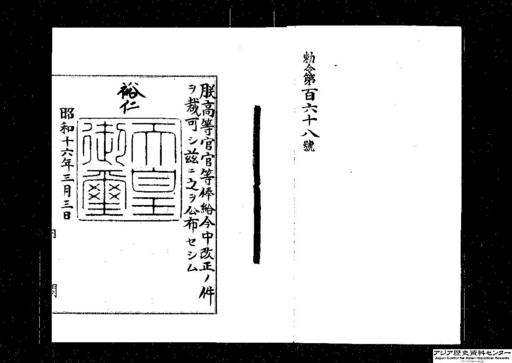 勅令第百六十八號
朕高等官官等俸給令中改正ノ件
ヲ裁可シ茲ニ之ヲ公布セシム
裕仁
天皇
御璽
昭和十六年三月三日
内
閣
アジア歴史資料センター
Japan Center for Asian Historical Records